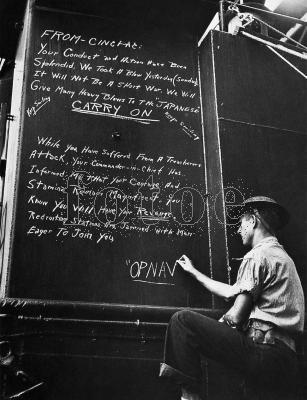 FROM-CINCPAC:
Your Conduct and Action Have Been
Splendid. We Took A Blow Yesterday (Sunday)
It Will Not Be A Short War. We Will
Give Many Heavy Blows To The JAPANESE
CARRY ON
While You Have Suffered From A Treacherous
Attack, Your Commander-in-Chief Has
Informed Me That Your Courage And
Stamina Remain Magnificent. You
Know You Will Have You Revenge
Recruiting Stations Are Jammed with Men
Eager To Join You
"OPNAV